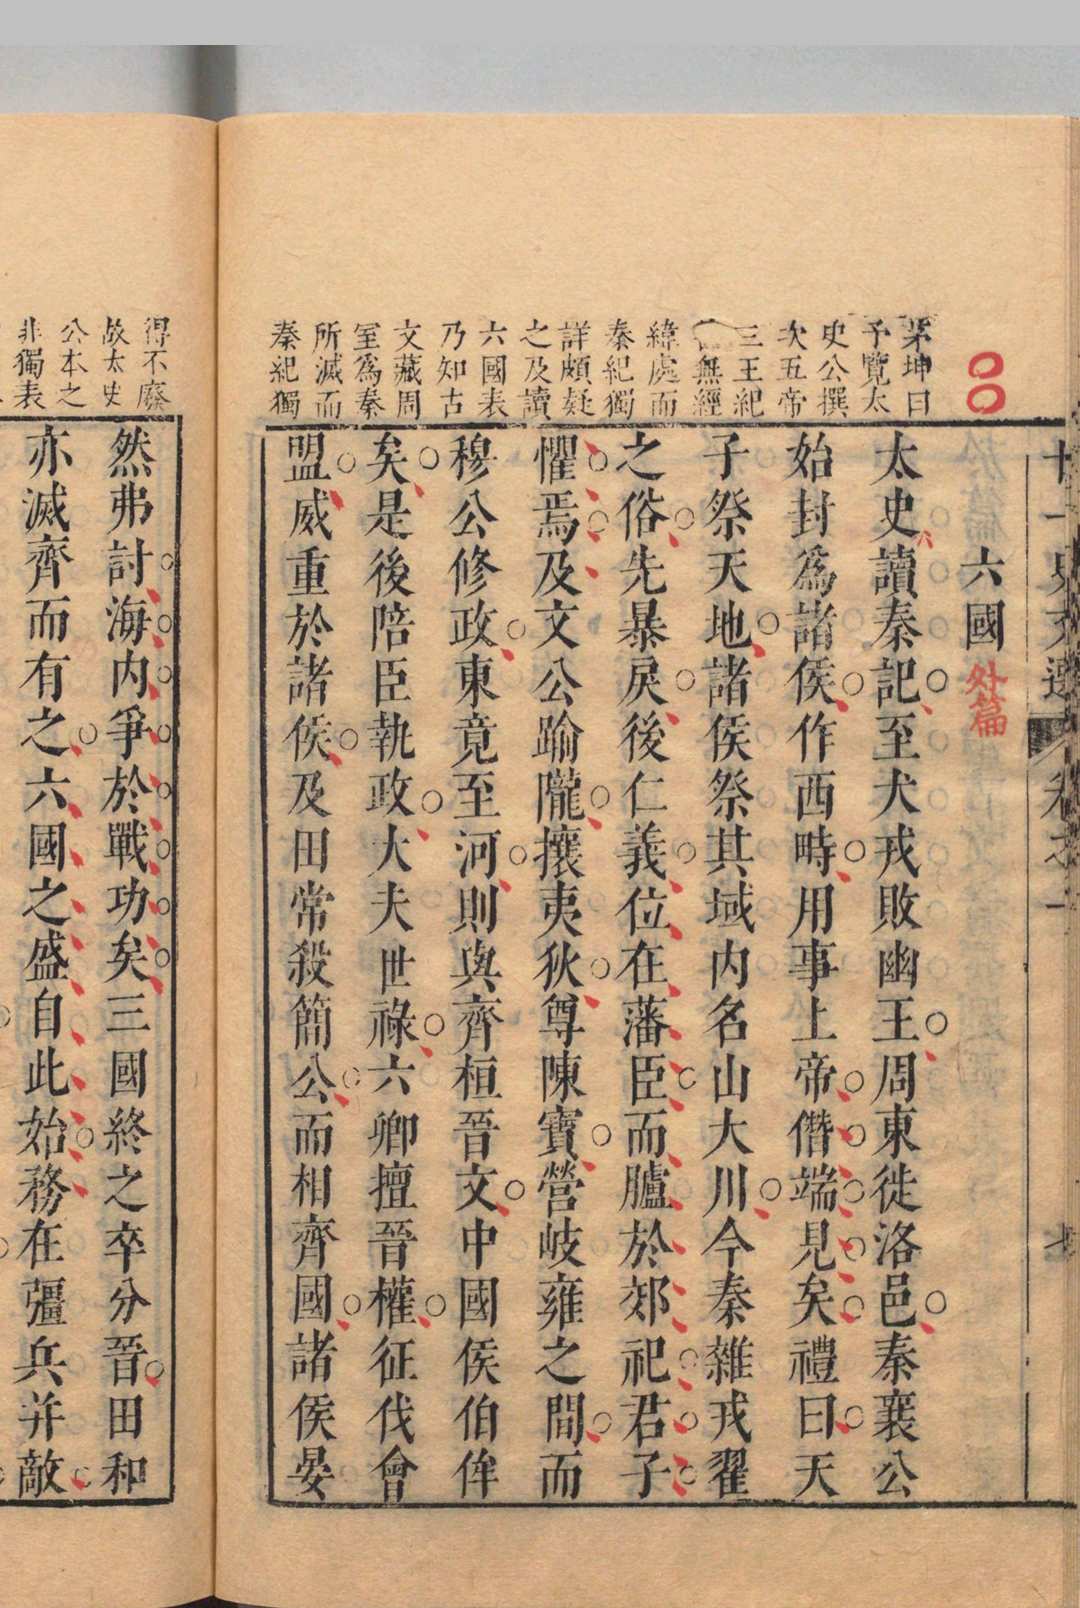 十一史文選
卷之一
七
六國
外篇
太史讀秦記至犬戎敗幽王周東徙洛邑秦襄公
始封爲諸侯作西畤用事上帝僭端見矣禮曰天
子祭天地諸侯祭其域内名山大川今秦雜戎翟
之俗先暴戾後仁義位在藩臣而臚於郊祀君子
懼焉及文公踰隴攘夷狄尊陳寶營岐雍之間而
穆公修政東竟至河則與齊桓晉文中國侯伯侔
矣是後陪臣執政大夫世祿六卿擅晉權征伐會
盟威重於諸侯及田常殺簡公而相齊國諸侯晏
茅坤曰
予覽太
史公撰
次五帝
三王紀
無經
緯處而
秦紀獨
詳頗疑
之及讀
六國表
乃知古
文藏周
室爲秦
所滅而
秦紀獨
然弗討海内爭於戰功矣三國終之卒分晉田和
亦滅齊而有之六國之盛自此始務在彊兵并敵
得不廢
故太史
公本之
非獨表